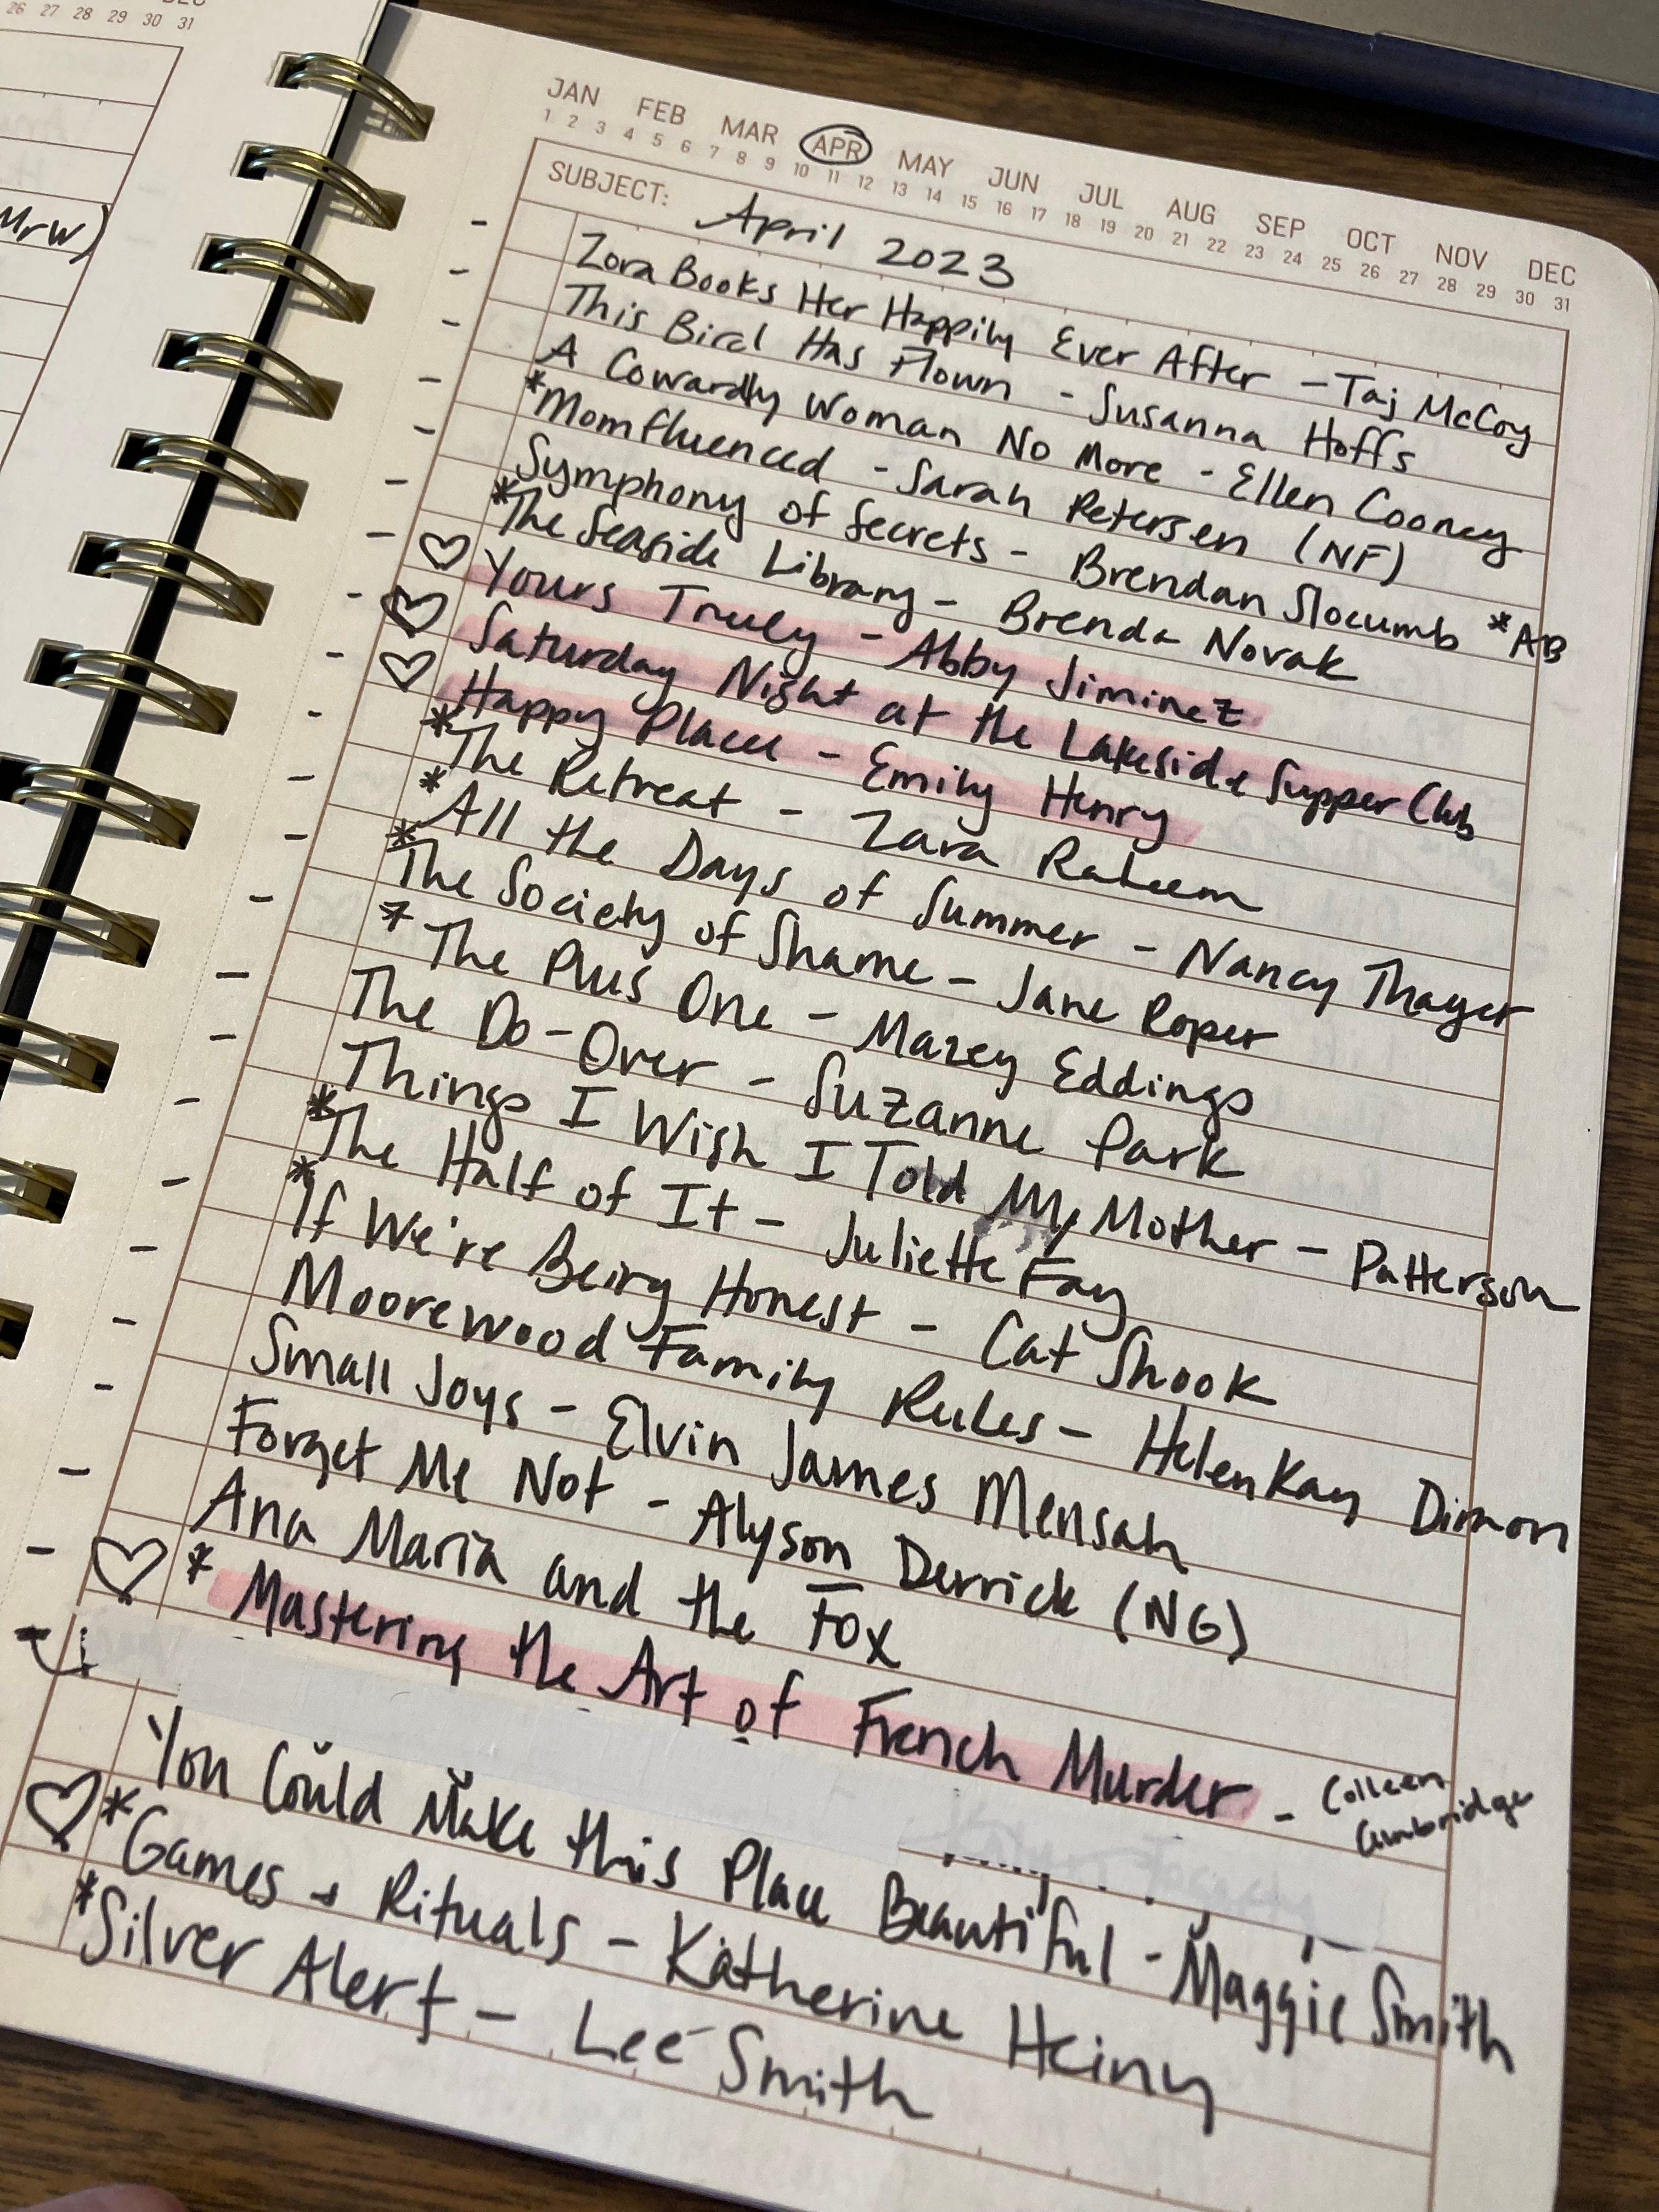 26 27 28 29 30 31
MrW)
JAN FEB MAR APR MAY JUN JUL AUG SEP OCT NOV DEC
1 2 3 4 5 6 7 8 9 10 11 12 13 14 15 16 17 18 19 20 21 22 23 24 25 26 27 28 29 30 31
SUBJECT: April 2023
- Zora Books Her Happily Ever After - Taj McCoy
- This Bird Has Flown - Susanna Hoffs
- A Cowardly Woman No More - Ellen Cooney
- *Momfluenced - Sarah Petersen (NF)
- Symphony of Secrets - Brendan Slocumb *AB
- *The Seaside Library - Brenda Novak
- ♡ Yours Truly - Abby Jiminez
- ♡ Saturday Night at the Lakeside Supper Club
- ♡ Happy Place - Emily Henry
- *The Retreat - Zara Raheem
- *All the Days of Summer - Nancy Thayer
- *The Society of Shame - Jane Roper
- * The Plus One - Mazey Eddings
- The Do-Over - Suzanne Park
- Things I Wish I Told My Mother - Patterson
- *The Half of It - Juliette Fay
- *If We're Being Honest - Cat Shook
- Moorewood Family Rules - HelenKay Dimon
- Small Joys - Elvin James Mensah
- Forget Me Not - Alyson Derrick (NG)
- Ana Maria and the Fox
- ♡ * Mastering the Art of French Murder - Colleen Cambridge
You Could Make this Place Beautiful - Maggie Smith
♡ *Games + Rituals - Katherine Heiny
*Silver Alert - Lee Smith